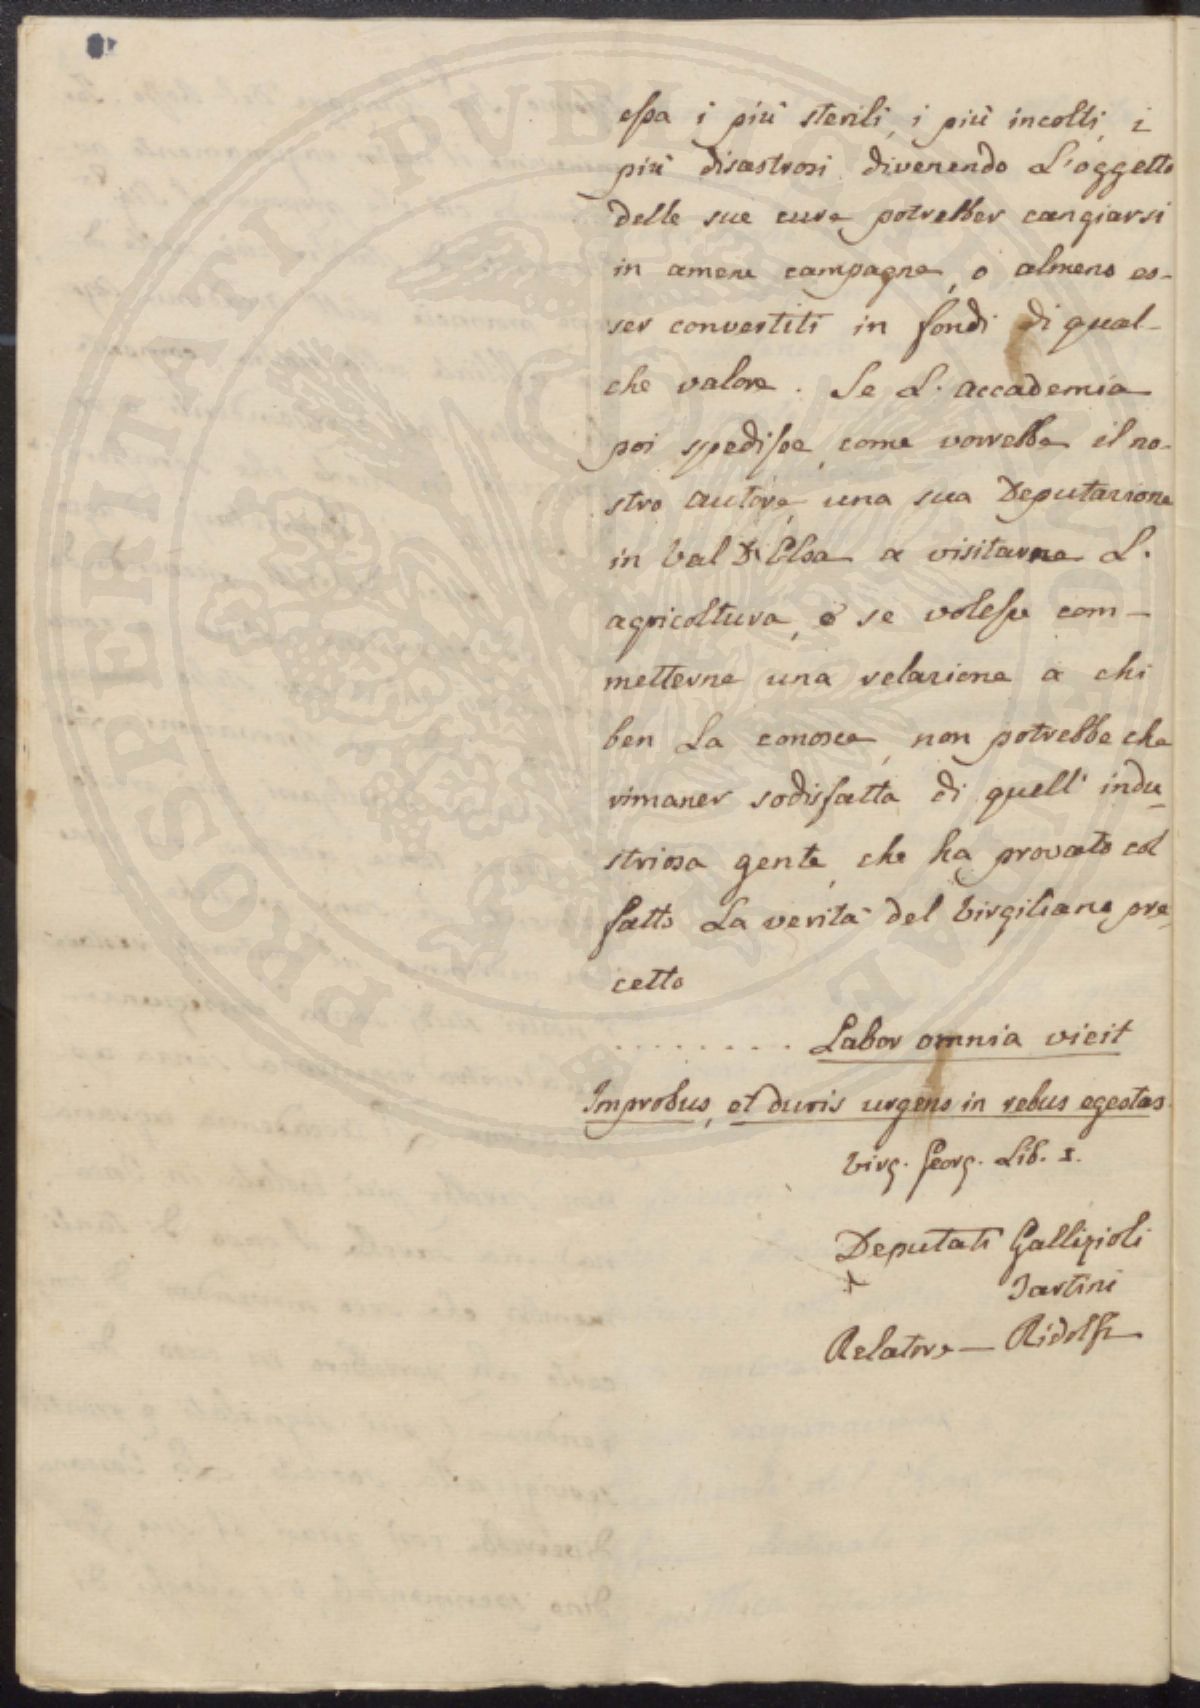 essa i più sterili, i più incolti, i
più disastrosi divenendo L'oggetto
delle sue cure potrebber cangiarsi
in amene campagne, o almeno es-
ser convertiti in fondi di qual-
che valore. Se L'accademia
poi spedisse, come vorrebbe il no-
stro autore, una sua Deputazione
in Val D'Elsa a visitarne L'
agricoltura, o se volesse com-
metterne una relazione a chi
ben La conosce, non potrebbe che
rimaner sodisfatta di quell'indu-
striosa gente, che ha provato col
fatto La verità del Virgiliano pre-
cetto
. . . . . . . . Labor omnia vicit
Improbus, et duris urgens in rebus egestas.
Virg. Georg. Lib. I.
Deputati Gallizioli
Tartini
Relatore — Ridolfi
PROSPERITATI PVBLICAE AVGENDAE